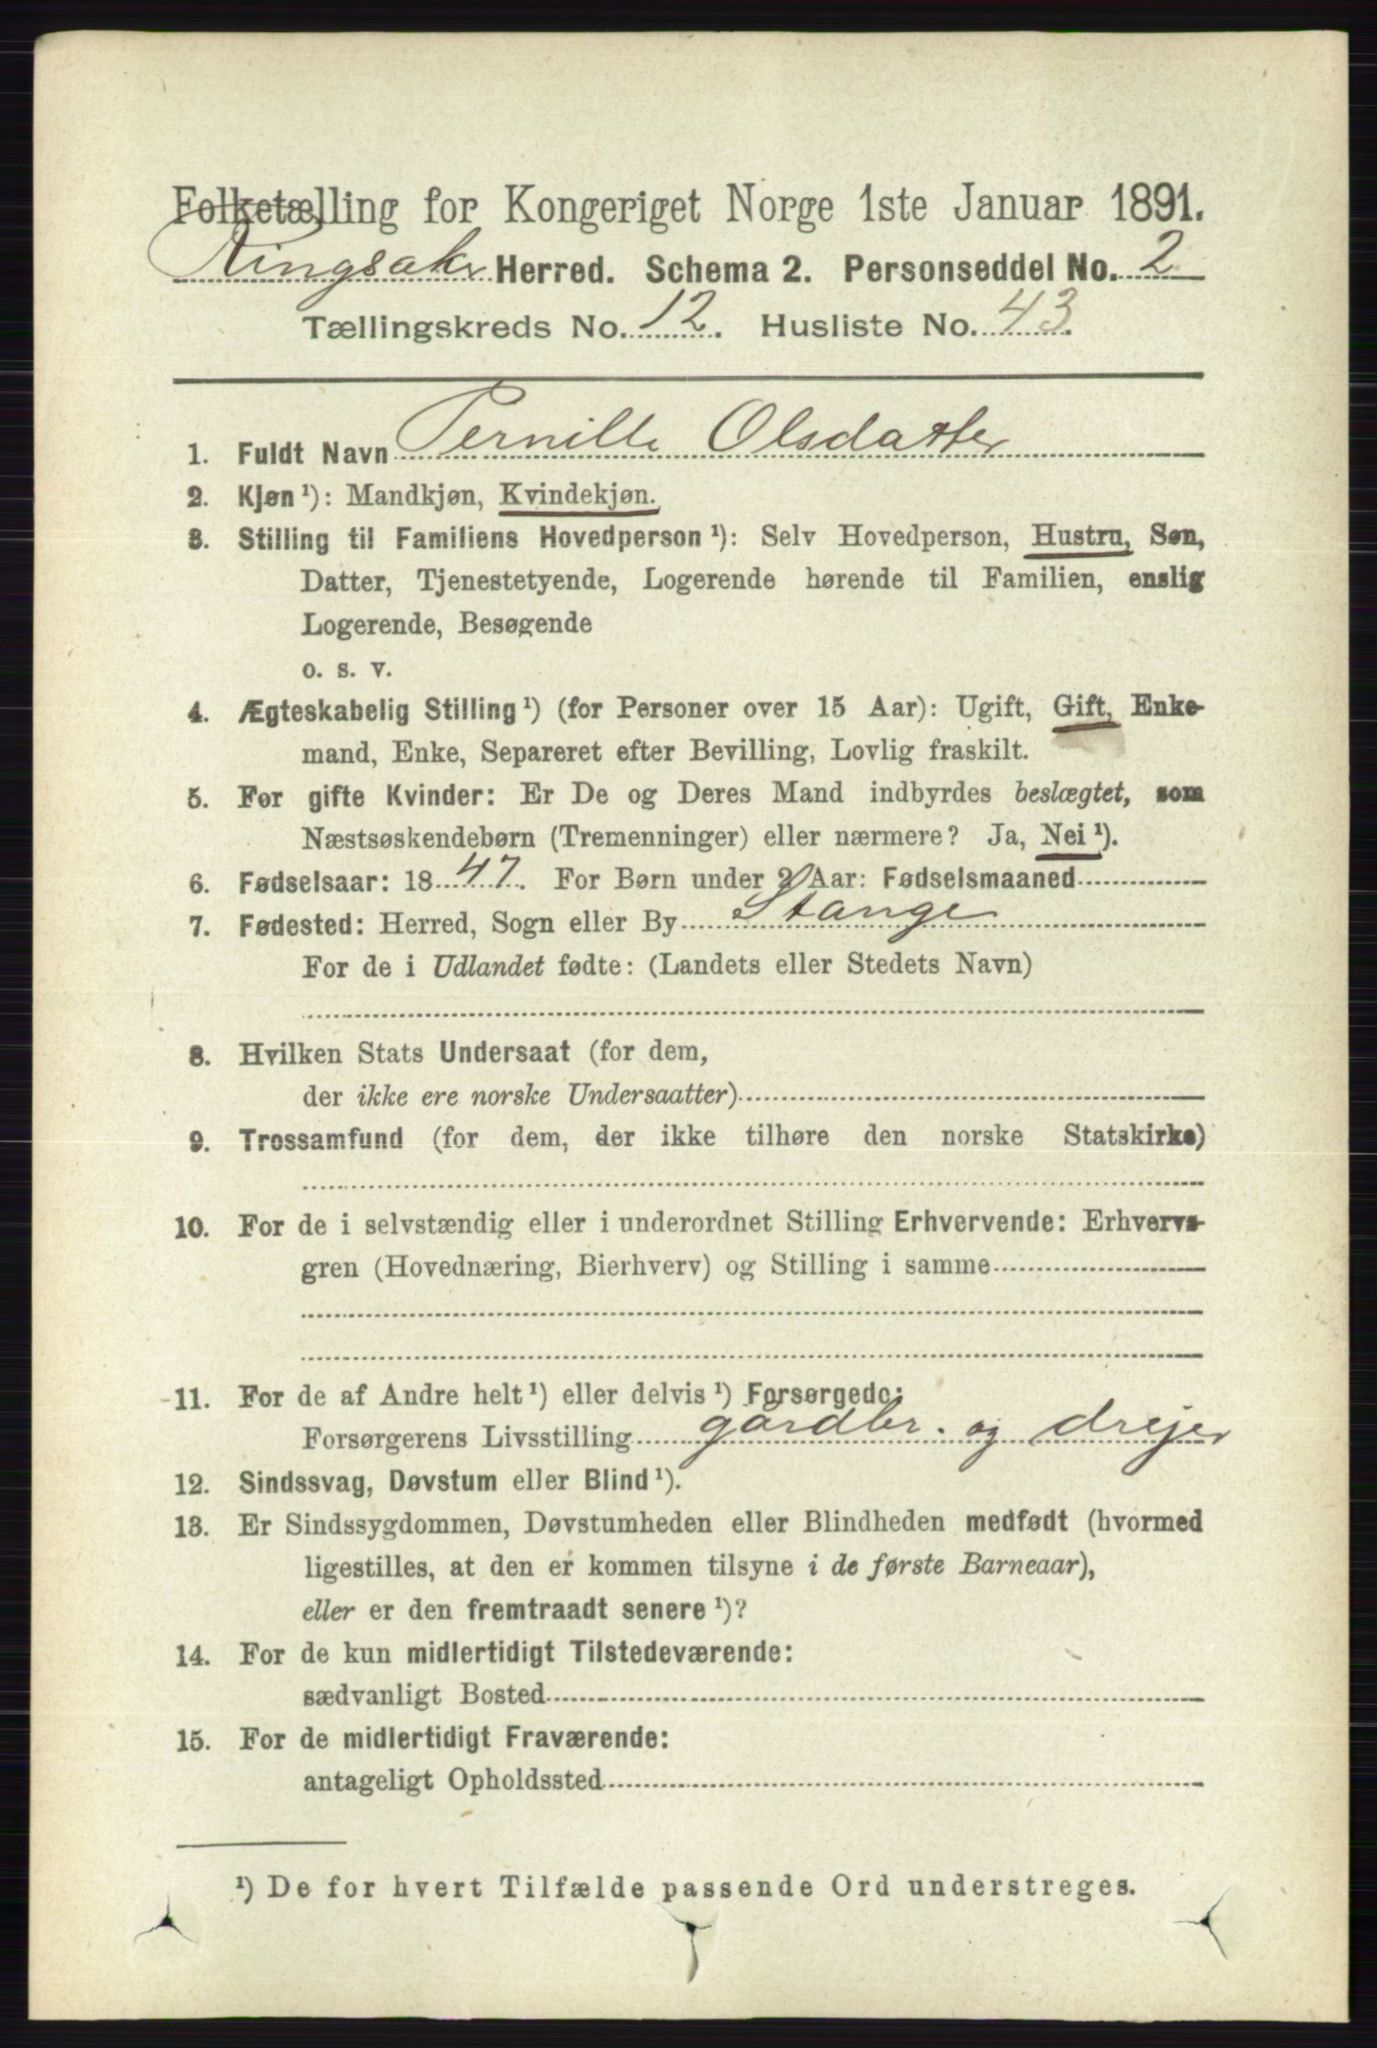 Folketælling for Kongeriget Norge 1ste Januar 1891.
Ringsaker Herred. Schema 2. Personseddel No. 2
Tællingskreds No. 12. Husliste No. 43.
1. Fuldt Navn Pernille Olsdatter
2. Kjøn ¹): Mandkjøn, Kvindekjøn.
3. Stilling til Familiens Hovedperson ¹): Selv Hovedperson, Hustru, Søn,
Datter, Tjenestetyende, Logerende hørende til Familien, enslig
Logerende, Besøgende
o. s. v.
4. Ægteskabelig Stilling ¹) (for Personer over 15 Aar): Ugift, Gift, Enke-
mand, Enke, Separeret efter Bevilling, Lovlig fraskilt.
5. For gifte Kvinder: Er De og Deres Mand indbyrdes beslægtet, som
Næstsøskendebørn (Tremenninger) eller nærmere? Ja, Nei ¹).
6. Fødselsaar: 1847. For Børn under 2 Aar: Fødselsmaaned
7. Fødested: Herred, Sogn eller By Stange
For de i Udlandet fødte: (Landets eller Stedets Navn)
8. Hvilken Stats Undersaat (for dem,
der ikke ere norske Undersaatter)
9. Trossamfund (for dem, der ikke tilhøre den norske Statskirke)
10. For de i selvstændig eller i underordnet Stilling Erhvervende: Erhvervs-
gren (Hovednæring, Bierhverv) og Stilling i samme
11. For de af Andre helt ¹) eller delvis ¹) Forsørgede:
Forsørgerens Livsstilling gårdbr. og drejer
12. Sindssvag, Døvstum eller Blind ¹).
13. Er Sindssygdommen, Døvstumheden eller Blindheden medfødt (hvormed
ligestilles, at den er kommen tilsyne i de første Barneaar),
eller er den fremtraadt senere ¹)?
14. For de kun midlertidigt Tilstedeværende:
sædvanligt Bosted
15. For de midlertidigt Fraværende:
antageligt Opholdssted
¹) De for hvert Tilfælde passende Ord understreges.